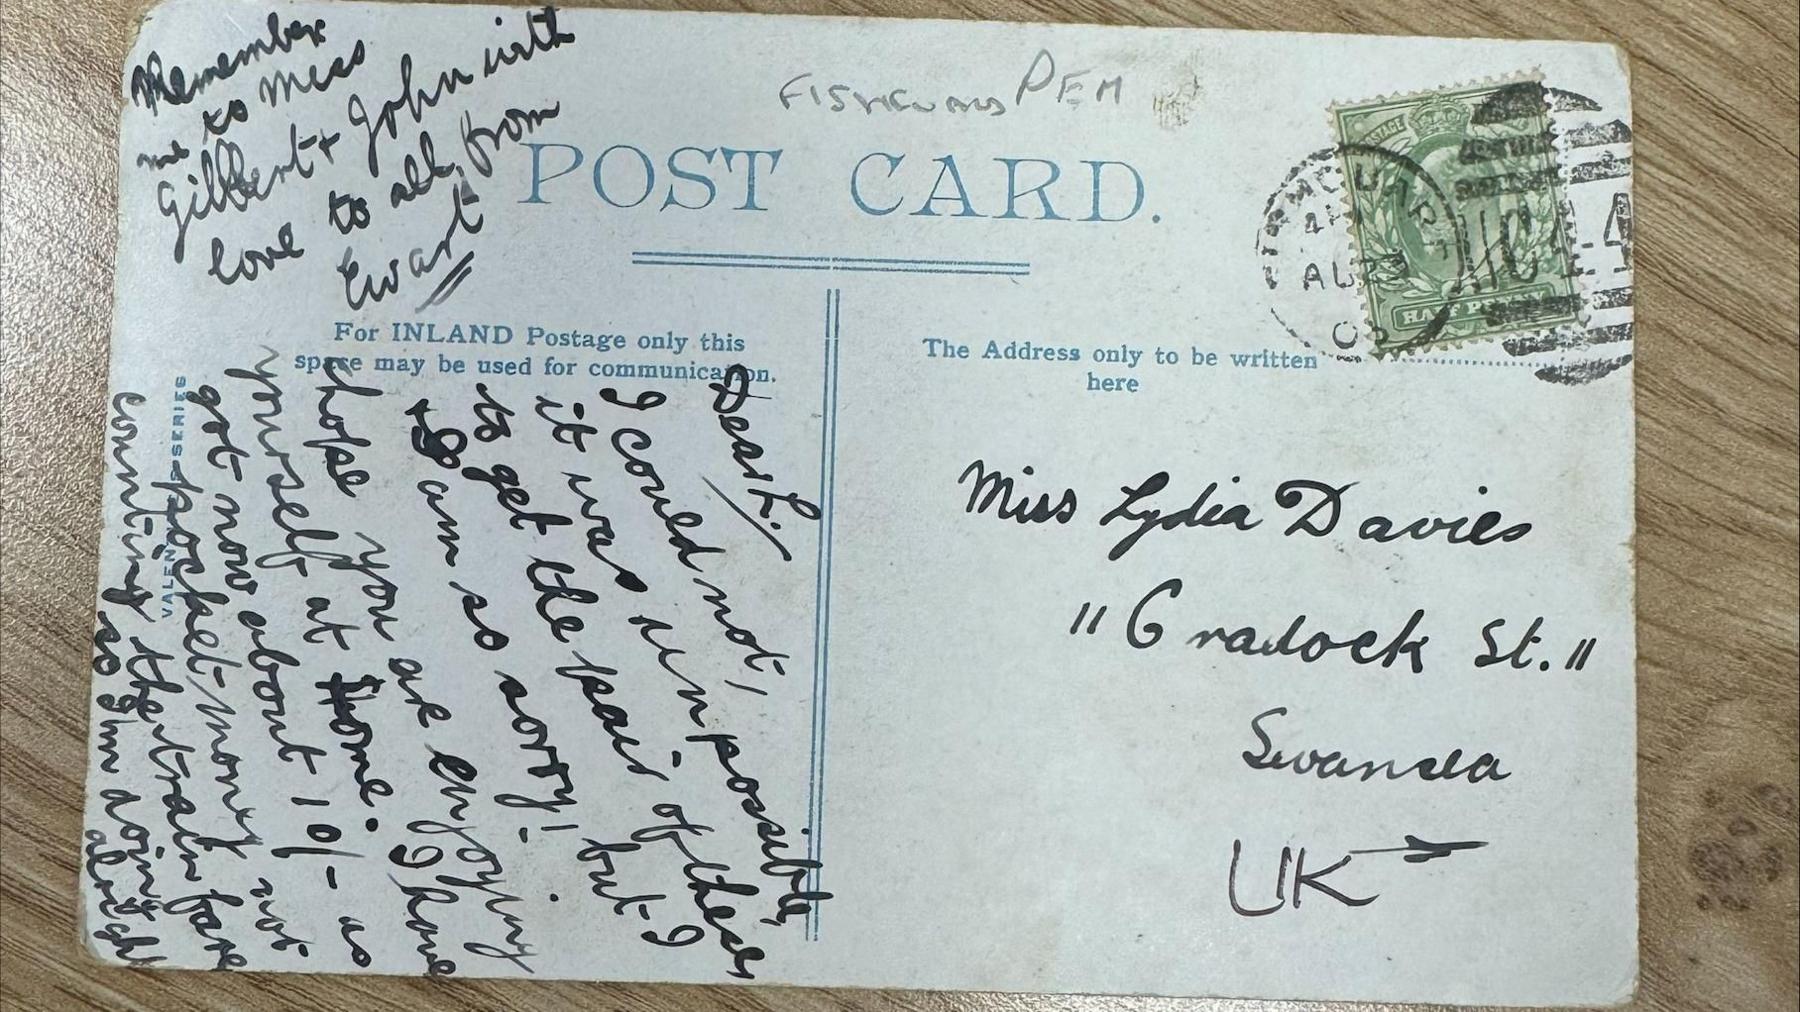 Remember
me to Miss
Gilbert + John with
love to all from
Ewart
PEM
POST CARD.
For INLAND Postage only this
space may be used for communication.
The Address only to be written
here
VALENTINES SERIES
HALF PENNY
AU 23
Dear L.
I could not,
it was impossible
to get the pair of these
& I am so sorry! but I
hope you are enjoying
yourself at Home. I have
got now about 10/- as
pocket-money not
counting the train fare
so I'm doing
alright
Miss Lydia Davies
"Cradock St."
Swansea
UK